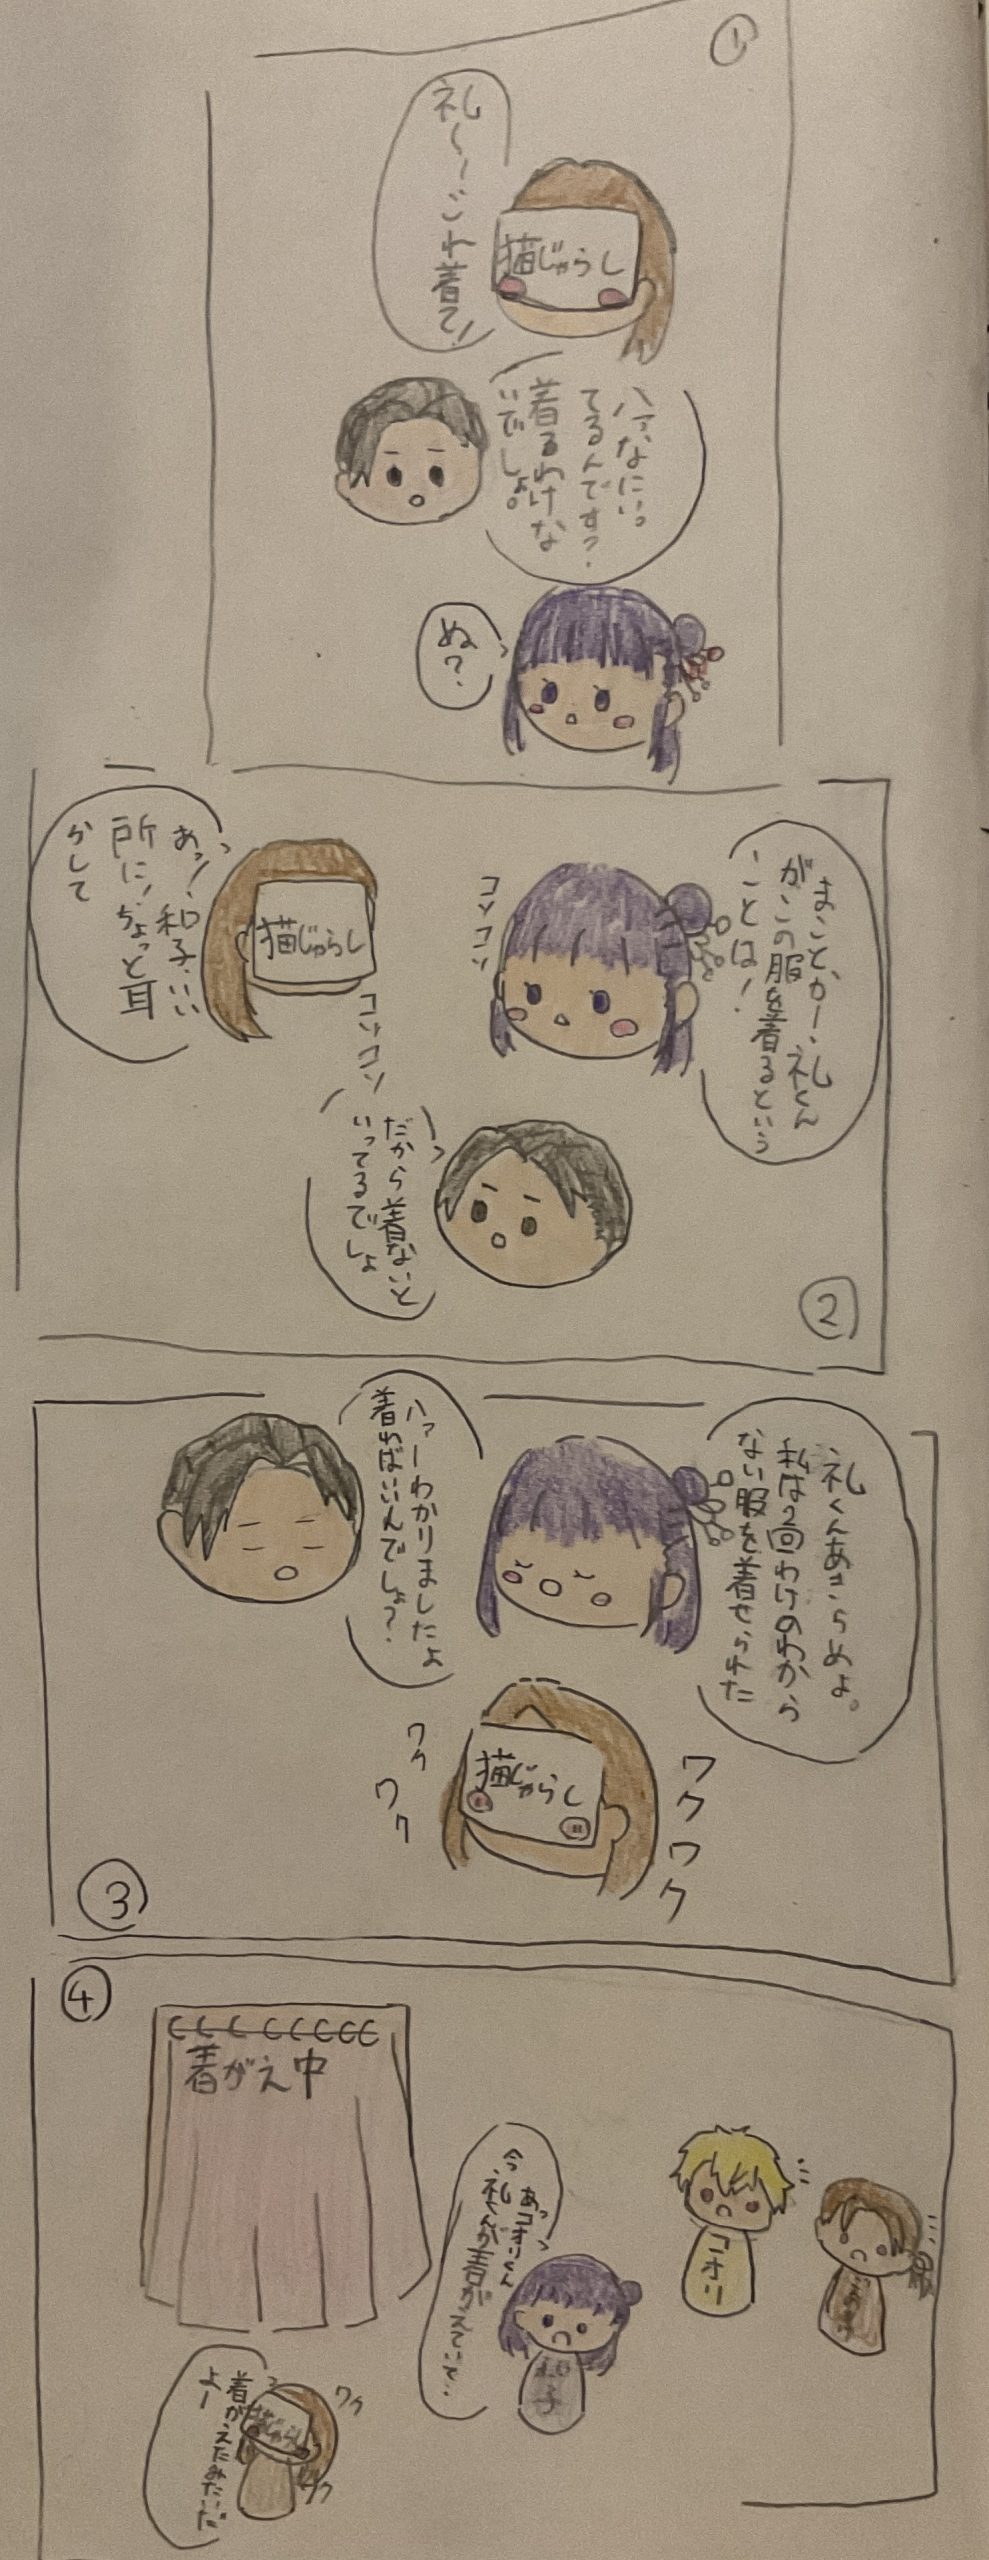 ①
礼〜〜これ着て!
猫じゃらし
ハァ、なにいっ
てるんです?
着るわけな
いでしょ。
ぬ?
まことかー、礼くん
がこの服を着るという
ことは!
コソコソ
あっ!、和子、いい
所に!ちょっと耳
かして
猫じゃらし
コソコソ
だから着ないと
いってるでしょ
②
礼くんあきらめよ。
私は2回わけのわから
ない服を着せられた
ハァーわかりましたよ
着ればいいんでしょ?
猫じゃらし
ワクワク
ワクワク
③
④
着がえ中
コオリ
あっコオリくん
今、礼くんが着がえていて…
和子
着がえたみたいだ
よー
猫じゃらし
ワク
ワク